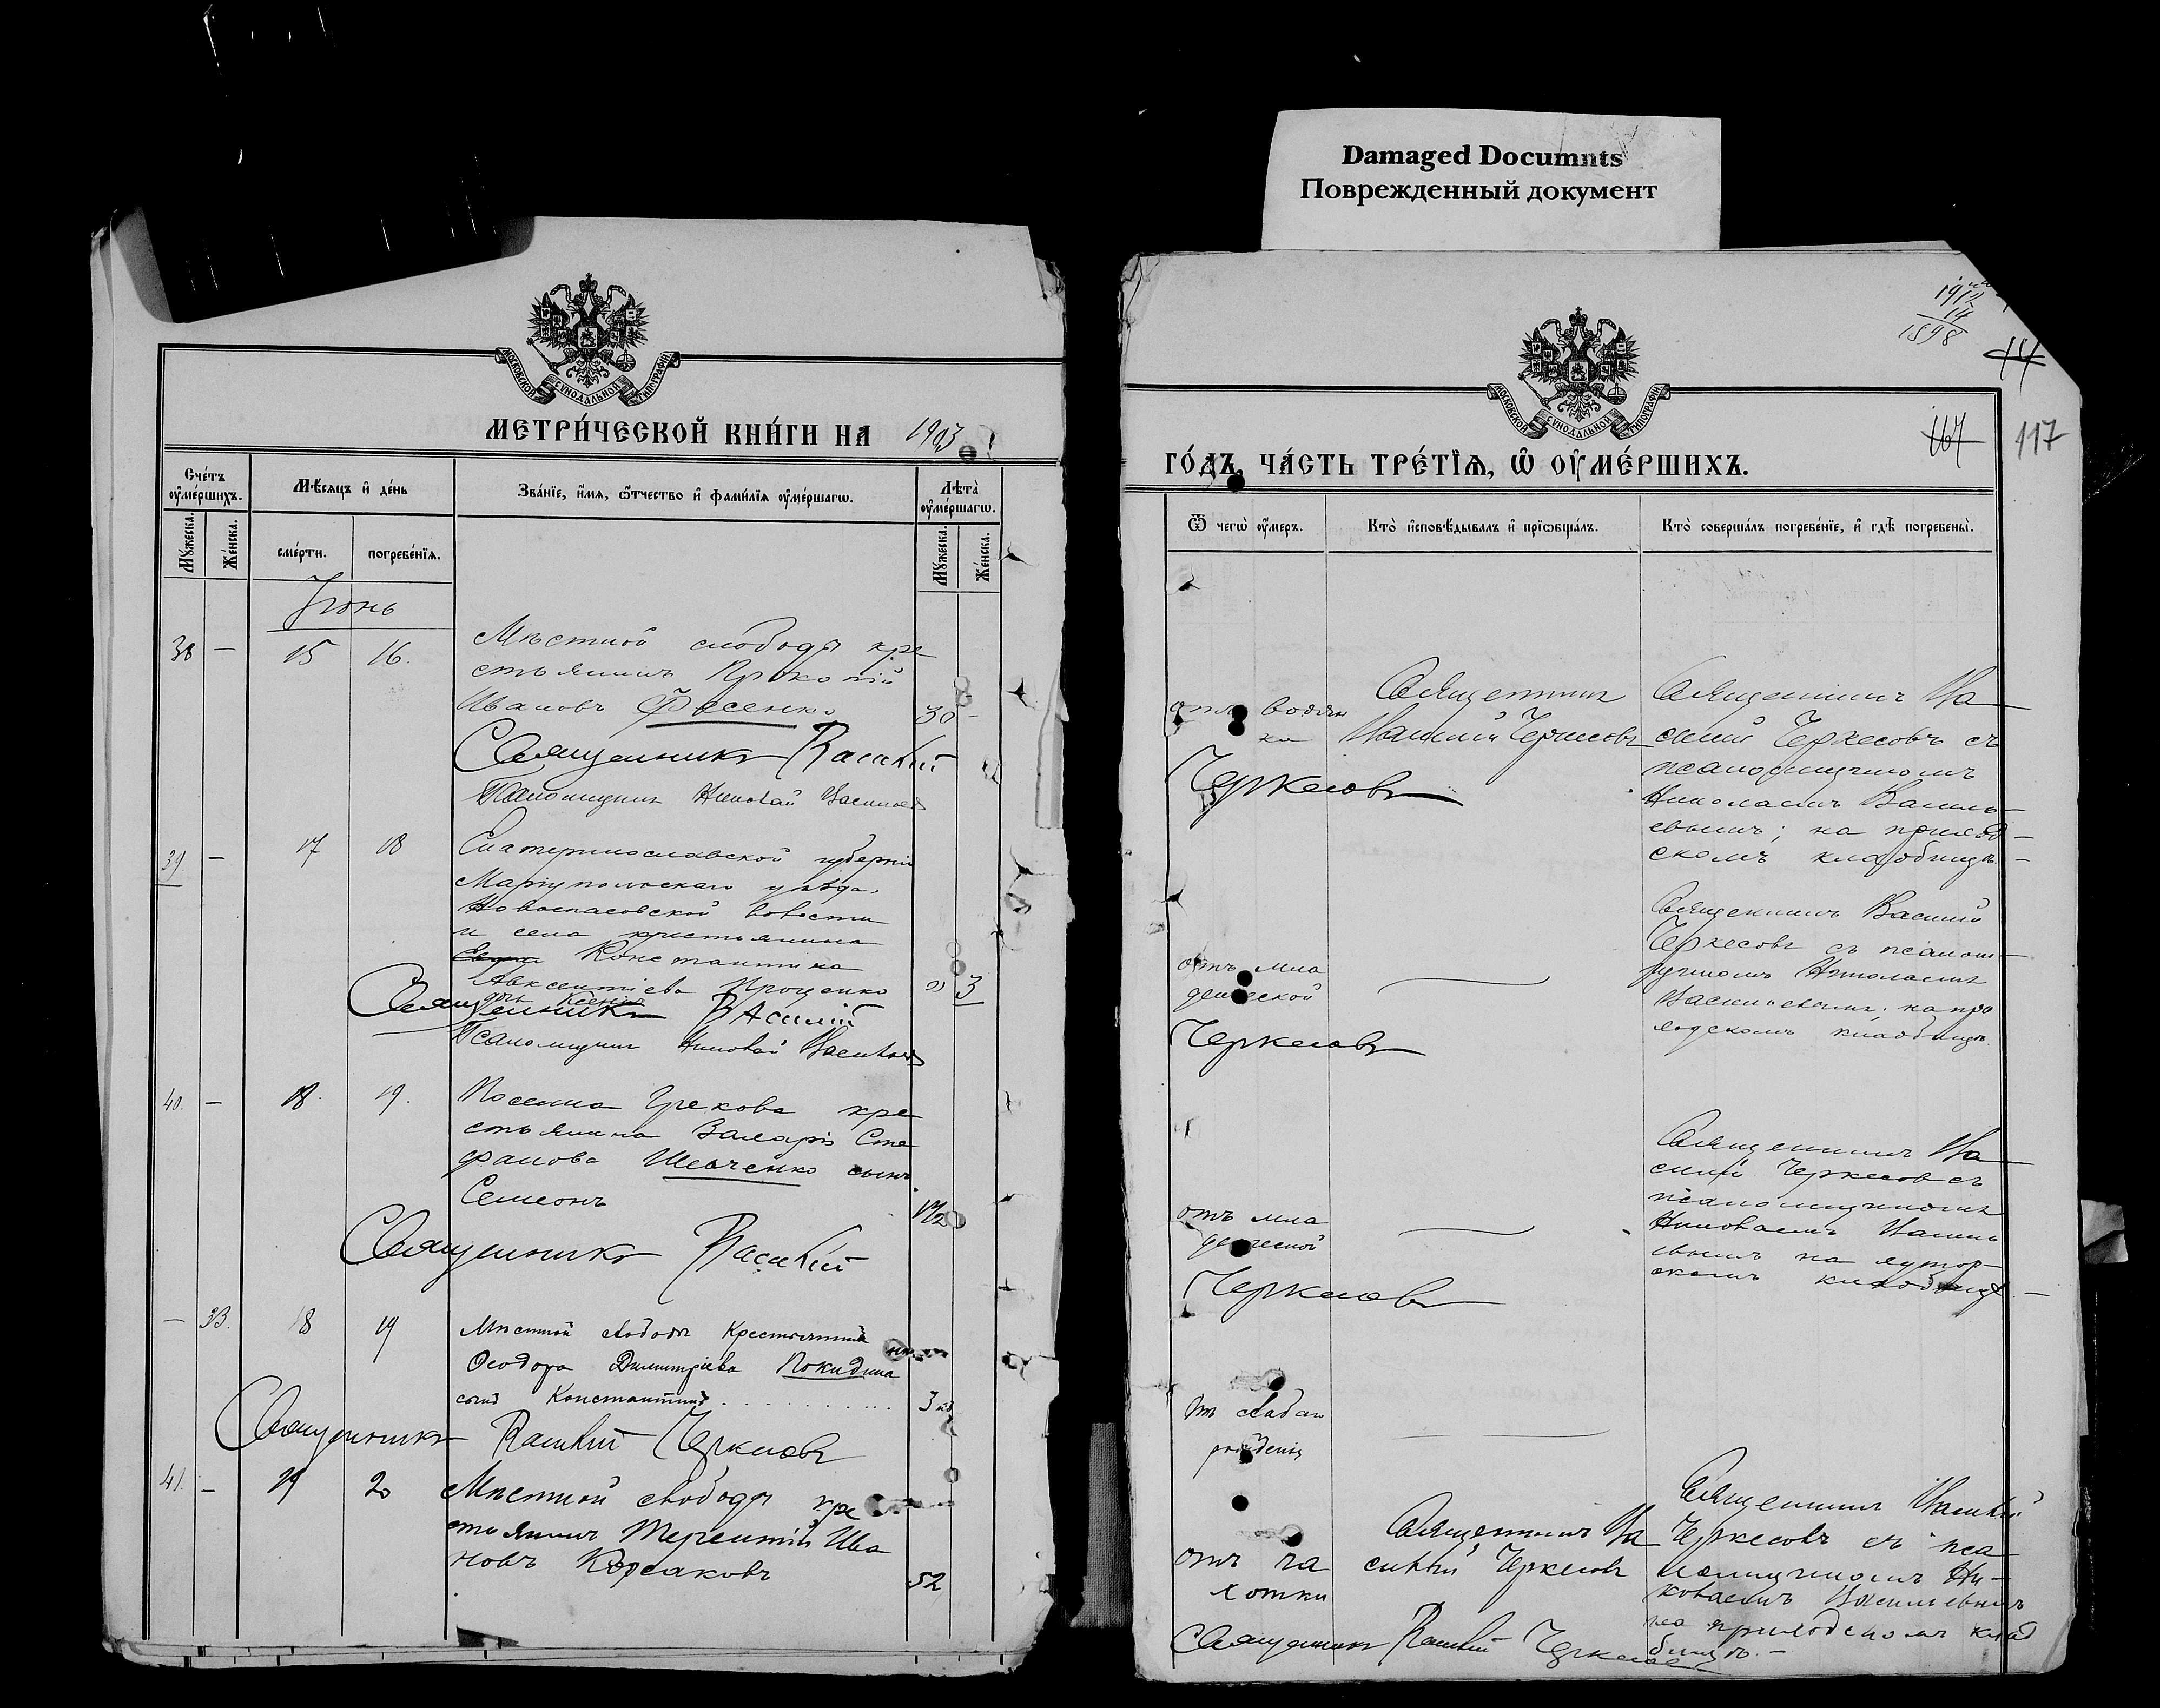 Damaged Documnts
Поврежденный документ
МОСКОВСКОЙ СУНОДАЛЬНОЙ ТИПОГРАФІИ
МЕТРИ́ЧЕСКОЙ КНИ́ГИ НА 1903
Сче́тъ ᲂу҆ме́ршихъ.
Мѣ́сяцъ и҆ де́нь
Зва́нїе, и҆́мя, ѻ҆́тчество и҆ фами́лїя ᲂу҆ме́ршагѡ.
Лѣ́та ᲂу҆ме́ршагѡ.
Мꙋ́жеска.
Же́нска.
сме́рти.
погребе́нїя.
Мꙋ́жеска.
Же́нска.
Іюнь
38 — 15 16.
Мѣстной слободы кре
стьянинъ Прокопій
Ивановъ Фесенко 30 —
Священникъ Василій
Псаломщикъ Николай Васильев
39. — 17 18
Екатеринославской губерніи
Маріупольскаго уѣзда,
Новоспасовской волости
и села крестьянина
Константина
Авксентіева Проценко 3
дочь Ксенія
Священникъ Василій
Псаломщикъ Николай Васильевъ
40. — 18. 19.
Поселка Грекова кре
стьянина Захарія Сте
фанова Шевченко сынъ
Семеонъ 1 1/2
Священникъ Василій
— 33. 18 19
Мѣстной слободы Крестьянина
Ѳеодора Димитріева Покидина
сынъ Константинъ . . . . . . . . . . . 3
Священникъ Василій Черкесовъ
41. — 19 20
Мѣстной слободы кре
стьянинъ Терентій Ива
новъ Корсаковъ 52
1912
14
1898
14
МОСКОВСКОЙ СУНОДАЛЬНОЙ ТИПОГРАФІИ
167 117
ГО́ДЪ, ЧА́СТЬ ТРЕ́ТЇЯ, Ѡ҆ ОУ҆МЕ́РШИХЪ.
Ѿ чегѡ̀ ᲂу҆́меръ.
Кто̀ и҆сповѣ́дывалъ и҆ прїѡбща́лъ.
Кто̀ соверша́лъ погребе́нїе, и҆ гдѣ̀ погребены̀.
отъ водян
ки
Священник
Василій Черкесовъ
Священникъ Ва
силій Черкесовъ съ
псаломщикомъ
Николаемъ Василь
евымъ; на приход
скомъ кладбищѣ. —
Черкесовъ
отъ мла
денческой
Священникъ Василій
Черкесовъ съ псалом
щикомъ Николаемъ
Васильевымъ; на при
ходскомъ кладбищѣ.
Черкесовъ
отъ мла
денческой
Священникъ Ва
силій Черкесовъ съ
псаломщикомъ
Николаемъ Василь
евымъ на хутор
скомъ кладбищѣ. —
Черкесовъ
От слабаго
рожденія
отъ ча
хотки
Священникъ Ва
силій Черкесовъ
Священникъ Василій
Черкесовъ съ пса
ломщикомъ Ни
колаемъ Васильевымъ
на приходскомъ клад
бищѣ. —
Священникъ Василій Черкесовъ